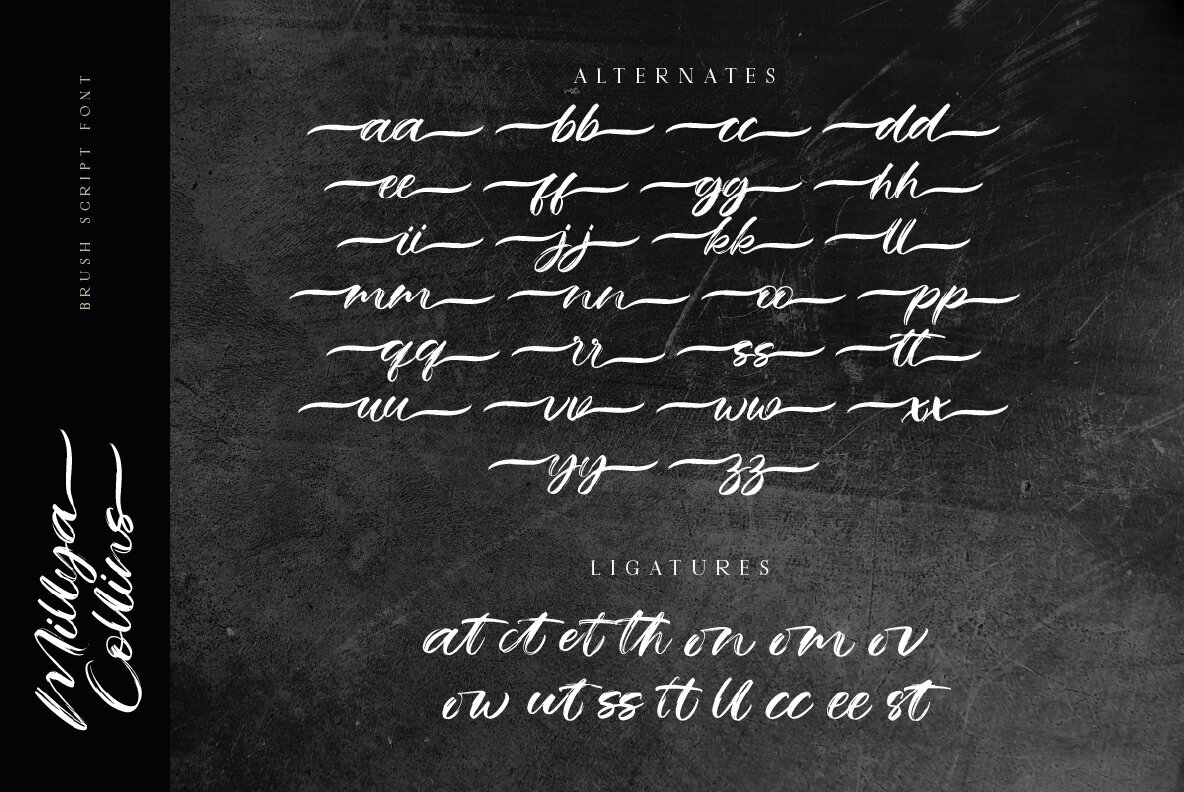 BRUSH SCRIPT FONT
Millya
Collins
ALTERNATES
aa bb cc dd
ee ff gg hh
ii jj kk ll
mm nn oo pp
qq rr ss tt
uu vv ww xx
yy zz
LIGATURES
at ct et th on om ov
ow ut ss tt ll cc ee st